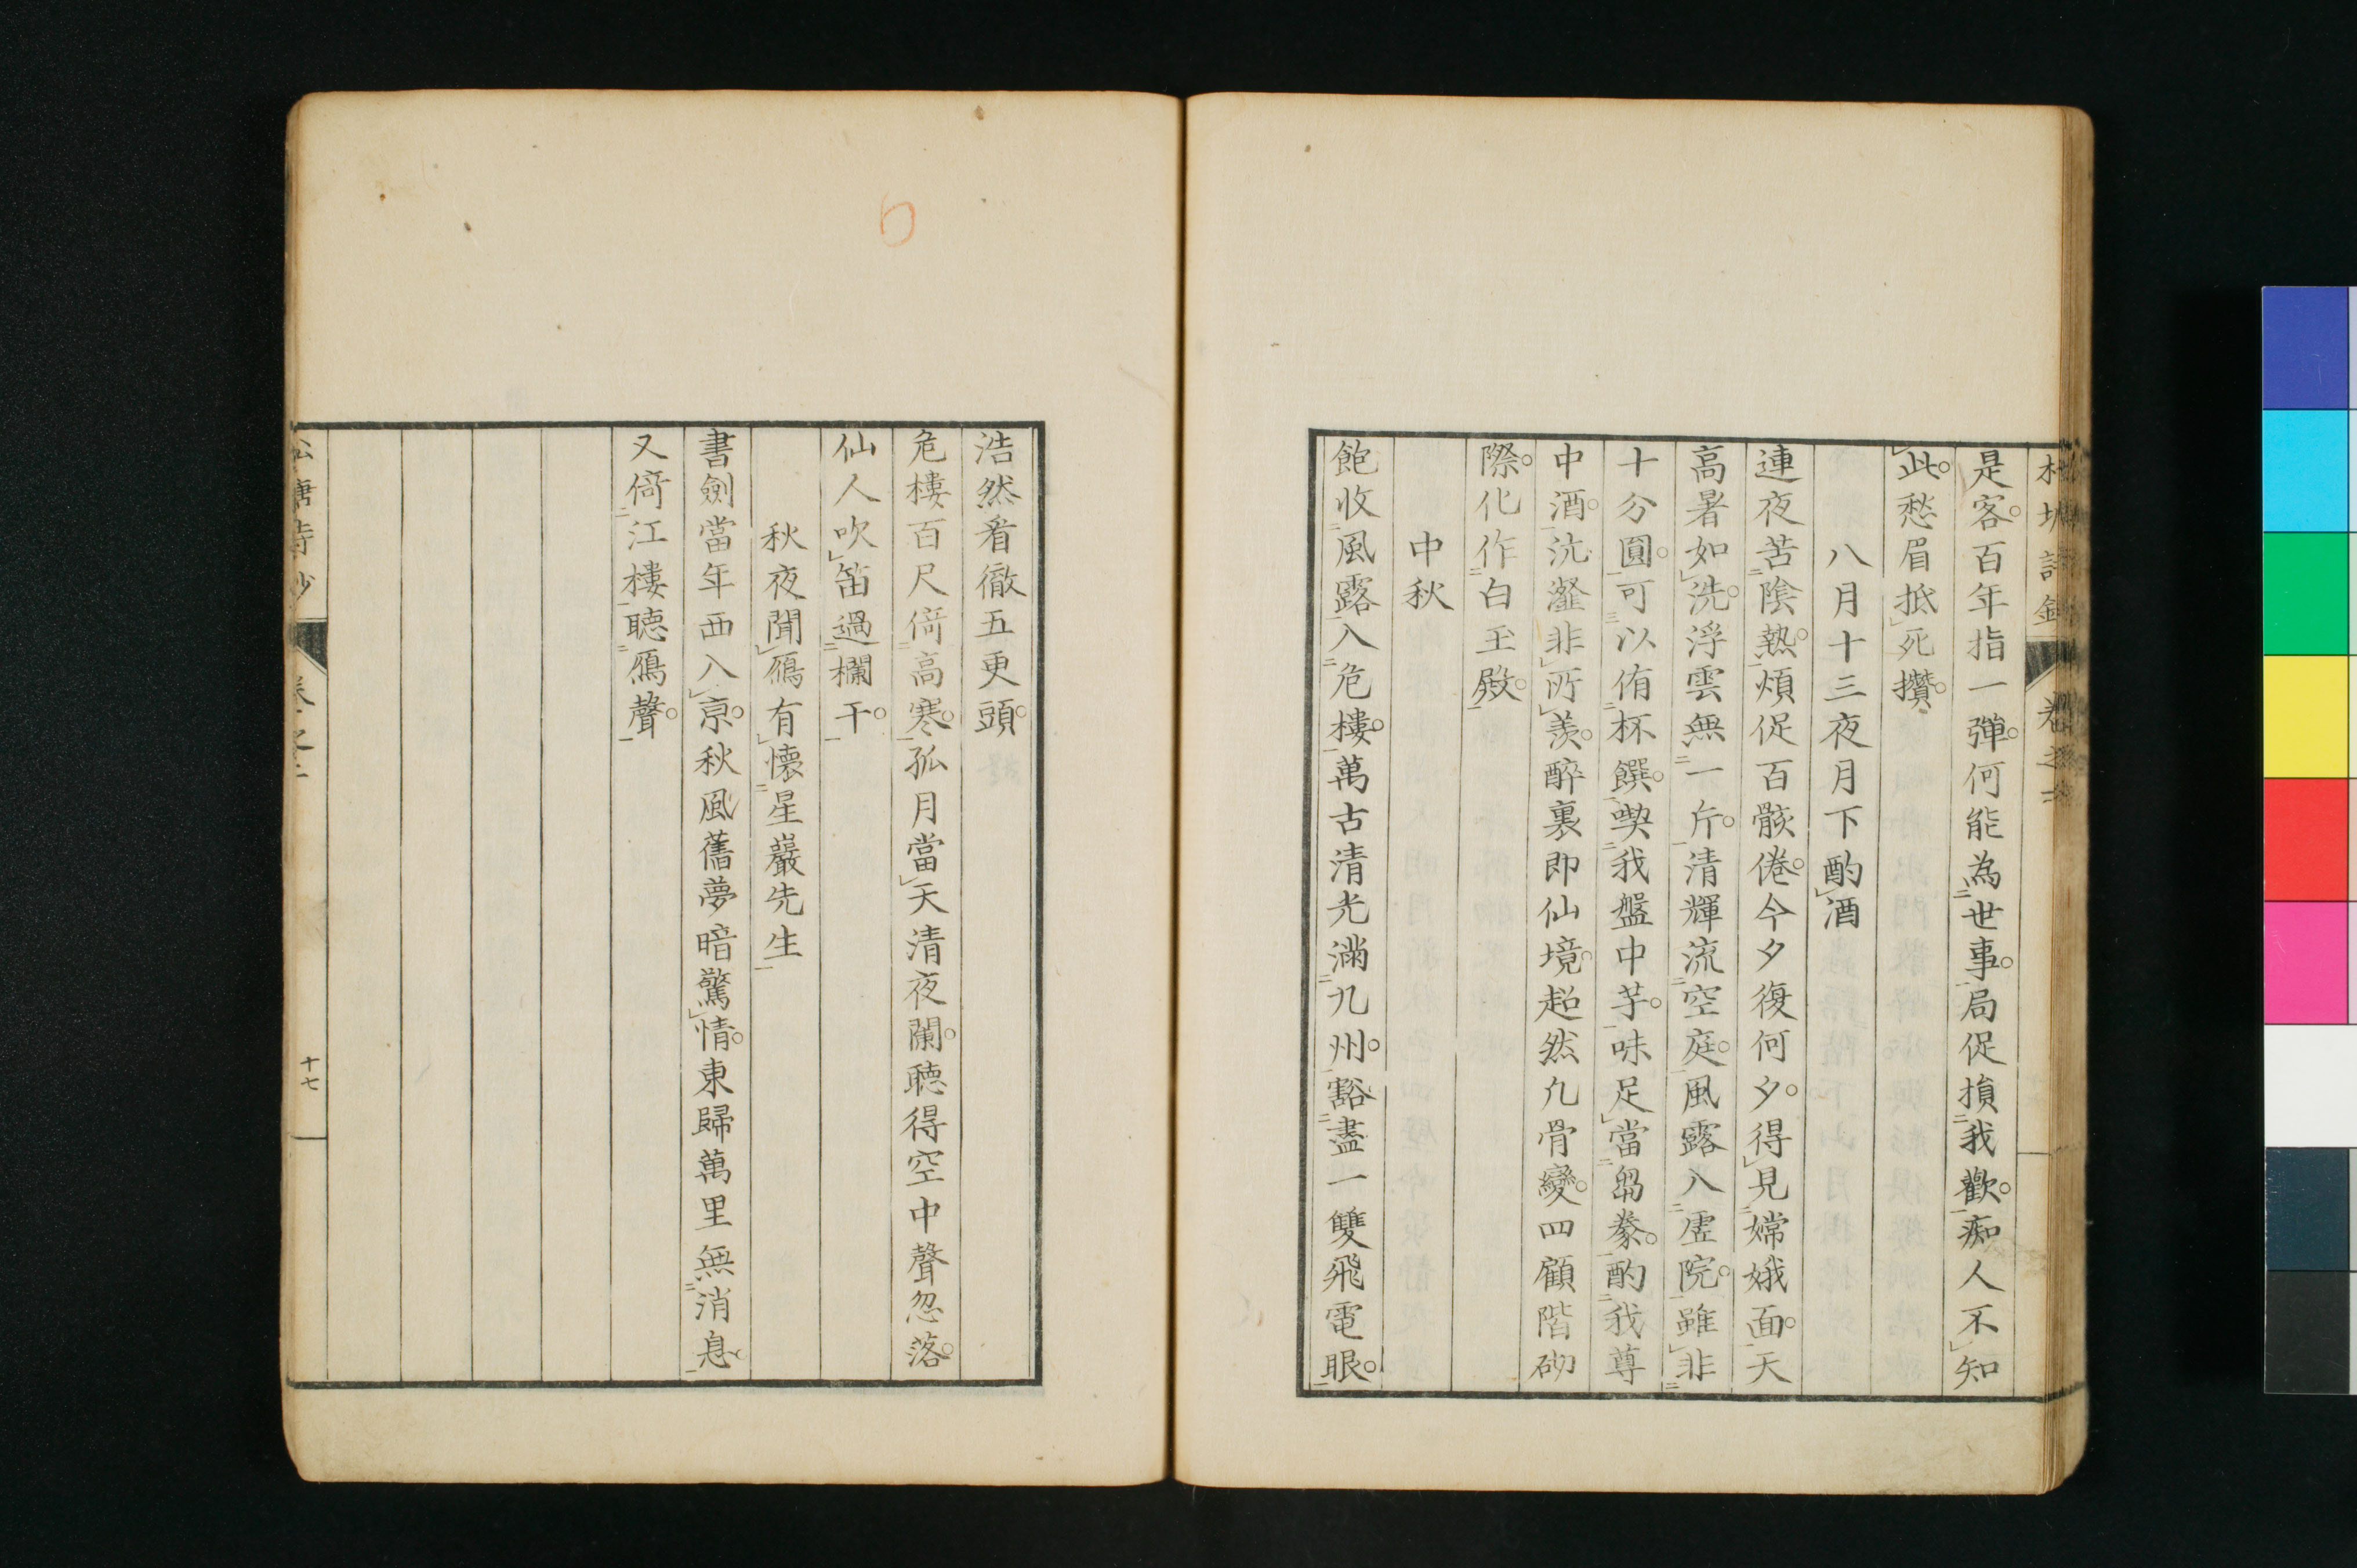 是客。百年指一彈。何能為世事。局促損我歡。痴人不知
此。愁眉抵死攢。
八月十三夜月下酌酒
連夜苦陰熱。煩促百骸倦。今夕復何夕。得見嫦娥面。天
高暑如洗。浮雲無一片。清輝流空庭。風露入虛院。雖非
十分圓。可以侑杯饌。喫我盤中芋。味足當芻豢。酌我尊
中酒。沆瀣非所羨。醉裏即仙境。超然凡骨變。四顧階砌
際。化作白玉殿。
中秋
飽收風露入危樓。萬古清光滿九州。豁盡一雙飛電眼。
浩然看徹五更頭。
危樓百尺倚高寒。孤月當天清夜闌。聽得空中聲忽落。
仙人吹笛過欄干。
秋夜聞鴈有懷星巖先生
書劍當年西入京。秋風舊夢暗驚情。東歸萬里無消息。
又倚江樓聽鴈聲。
十七